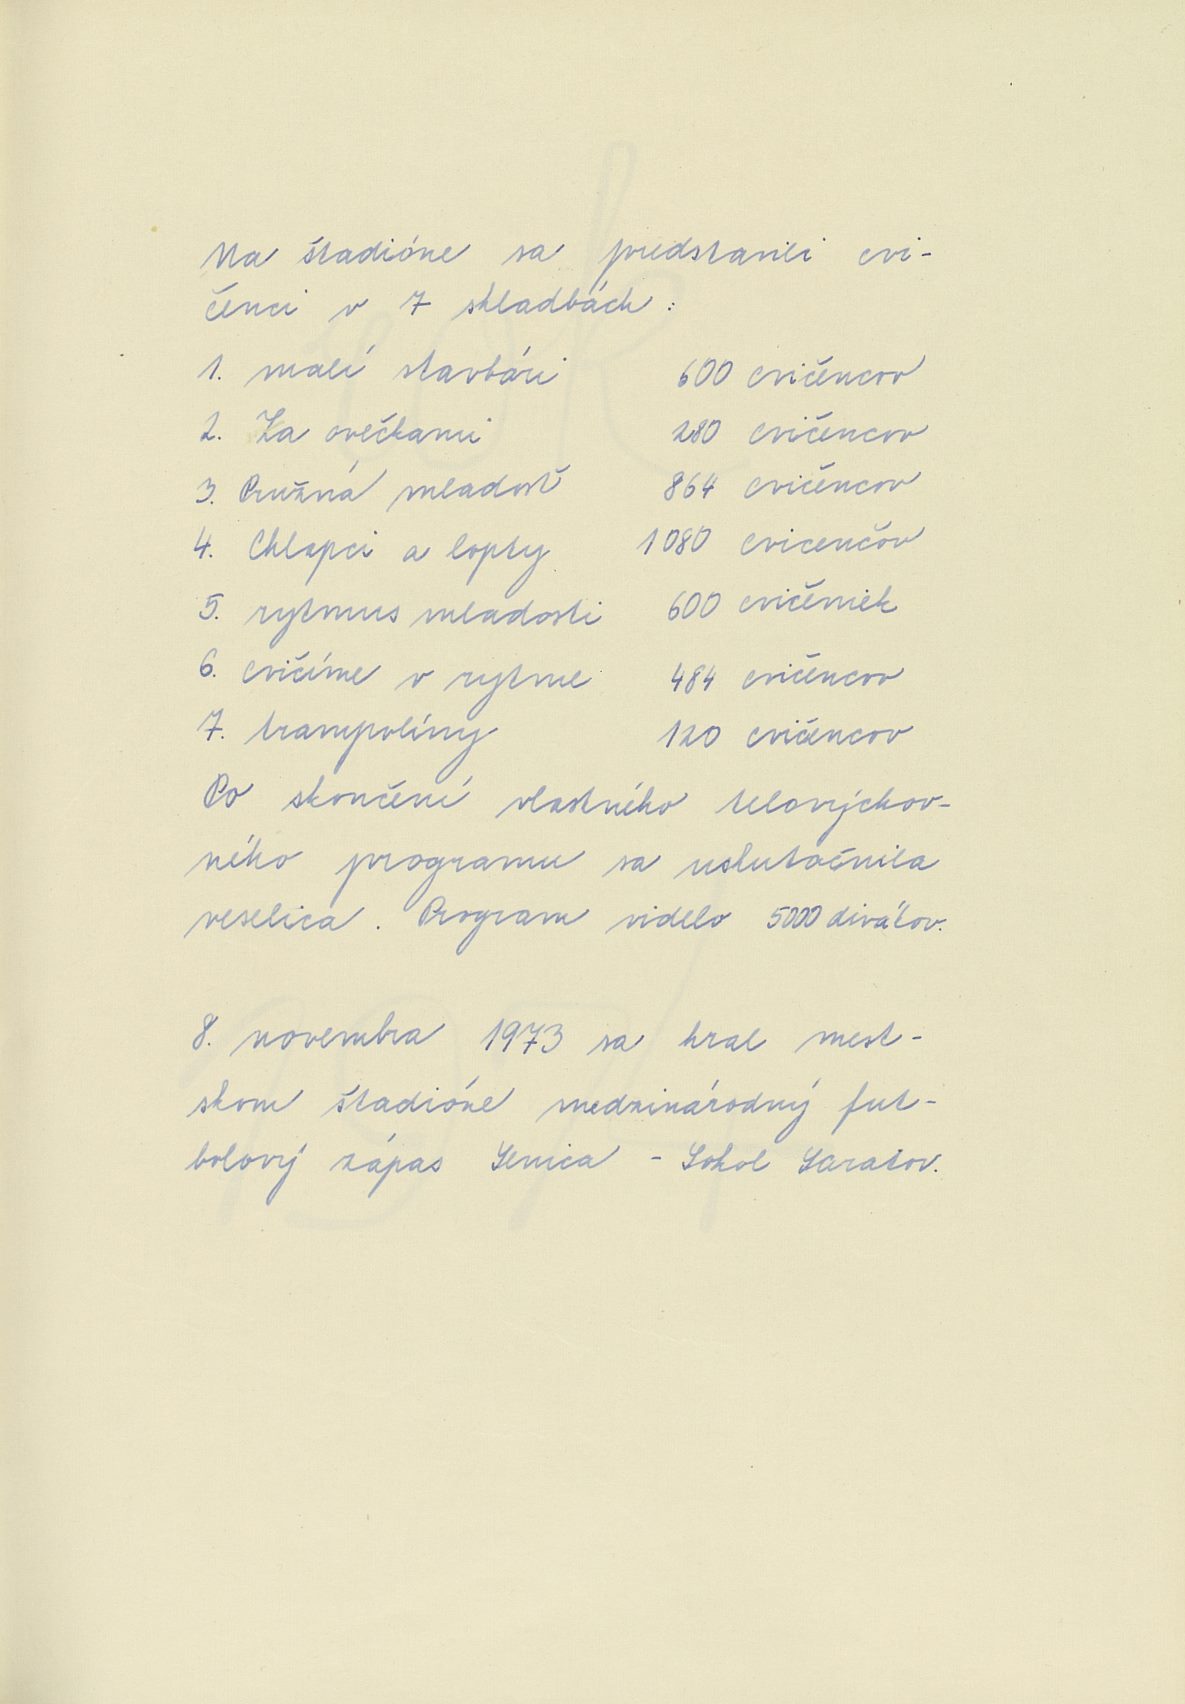 Na štadióne sa predstavili cvi-
čenci v 7 skladbách:
1. malí stavbári 600 cvičencov
2. Za ovečkami 280 cvičencov
3. Pružná mladosť 864 cvičencov
4. Chlapci a lopty 1080 cvicenčov
5. rytmus mladosti 600 cvičeniek
6. cvičíme v rytme 484 cvičencov
7. trampolíny 120 cvičencov
Po skončení vlastného telovýchov-
ného programu sa uskutočnila
veselica. Program videlo 5000 divákov.
8. novembra 1973 sa hral mest-
skom štadióne medzinárodný fut-
bolový zápas Senica - Sokol Saratov.